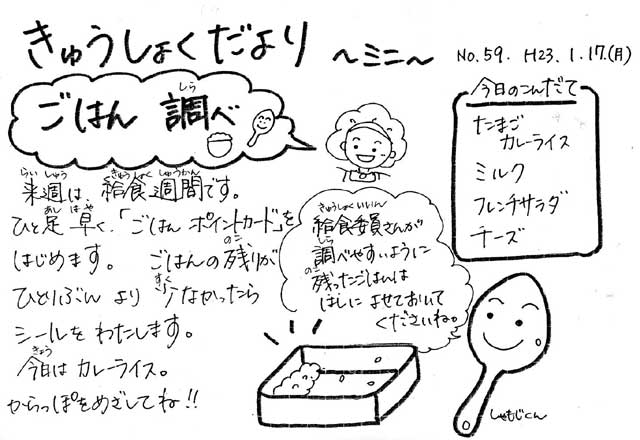 きゅうしょくだより ～ミニ～ No.59. H23.1.17.(月)
ごはん 調べ
しら
今日のこんだて
たまご
カレーライス
ミルク
フレンチサラダ
チーズ
らいしゅう きゅうしょく しゅうかん
来週は、給食週間です。
あし はや
ひと足早く、「ごはんポイントカード」を
はじめます。 ごはんの残りが
のこ
ひとりぶん より 少なかったら
すく
シールを わたします。
きょう
今日は カレーライス。
からっぽをめざしてね!!
きゅうしょくいいん
給食委員さんが
しら
調べやすいように
のこ
残ったごはんは
はしに よせておいて
くださいね。
しゃもじくん